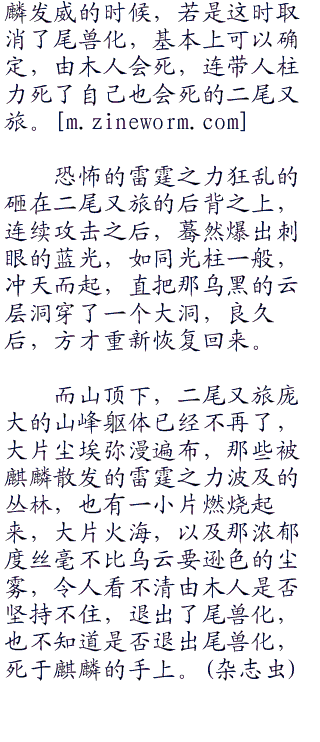 麟发威的时候，若是这时取
消了尾兽化，基本上可以确
定，由木人会死，连带人柱
力死了自己也会死的二尾又
旅。[m.zineworm.com]
恐怖的雷霆之力狂乱的
砸在二尾又旅的后背之上，
连续攻击之后，蓦然爆出刺
眼的蓝光，如同光柱一般，
冲天而起，直把那乌黑的云
层洞穿了一个大洞，良久
后，方才重新恢复回来。
而山顶下，二尾又旅庞
大的山峰躯体已经不再了，
大片尘埃弥漫遍布，那些被
麒麟散发的雷霆之力波及的
丛林，也有一小片燃烧起
来，大片火海，以及那浓郁
度丝毫不比乌云要逊色的尘
雾，令人看不清由木人是否
坚持不住，退出了尾兽化，
也不知道是否退出尾兽化，
死于麒麟的手上。(杂志虫)